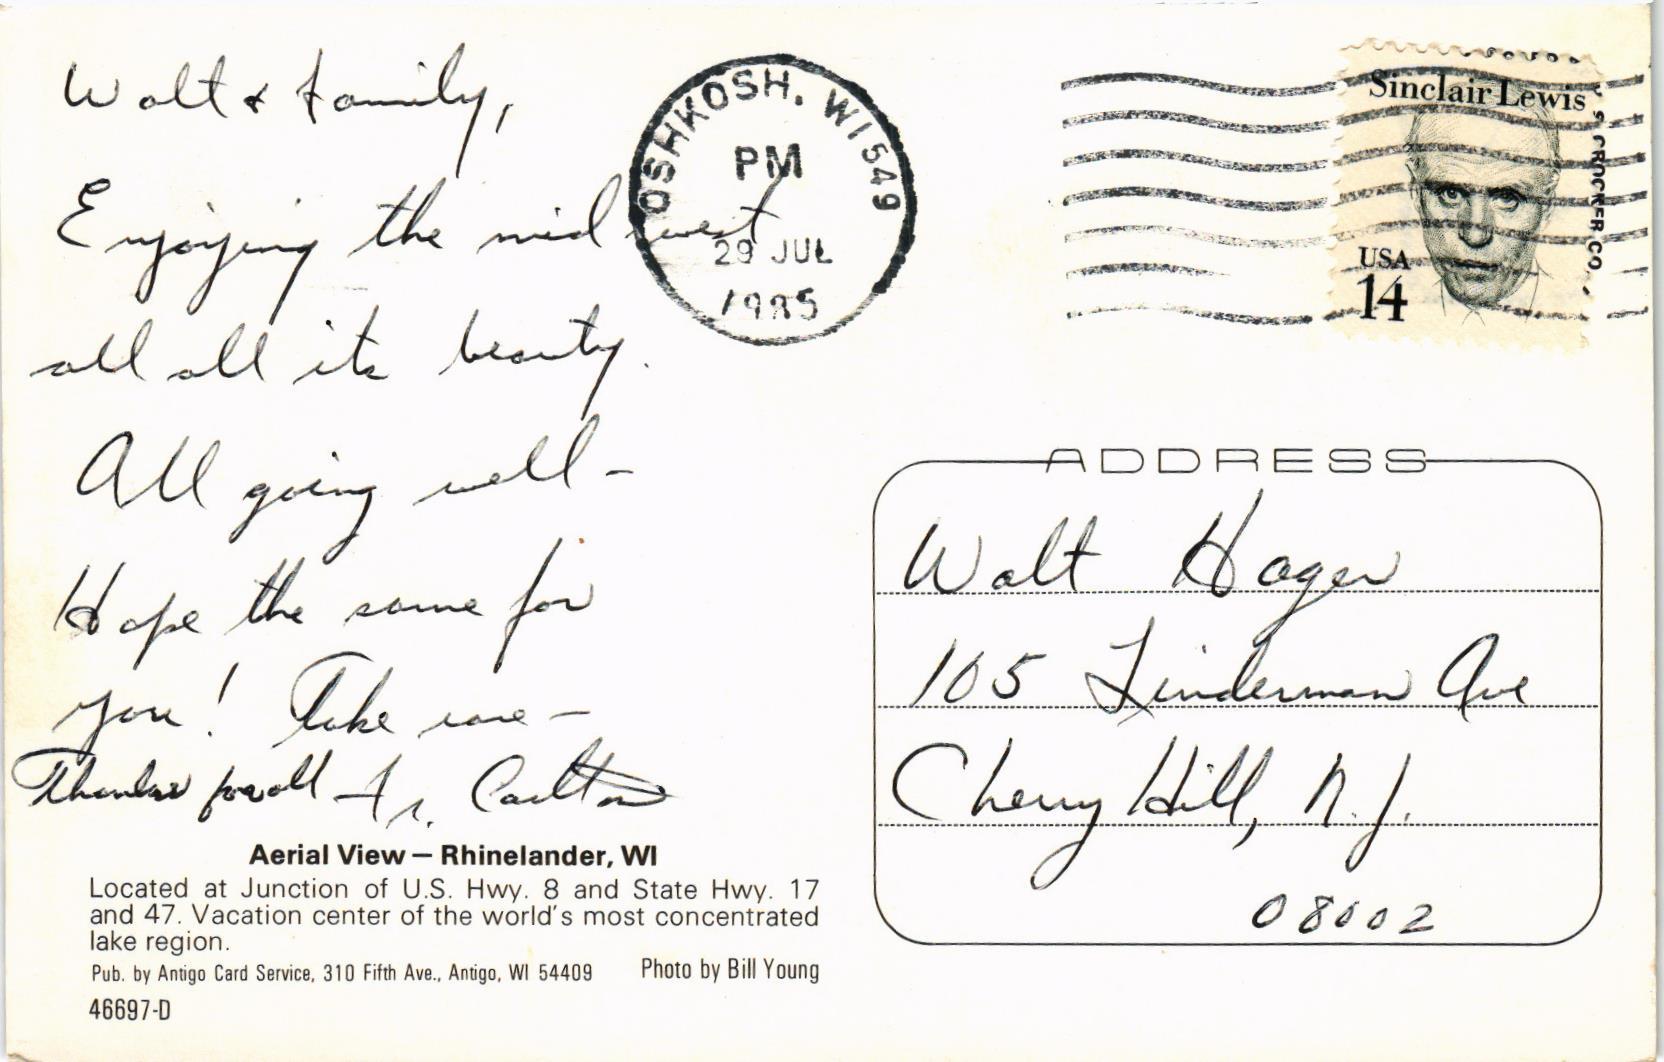 Walt & family,
Enjoying the midwest
all all its beauty.
All going well -
Hope the same for
you! Take care -
Thanks for all Fr. Carlton
Aerial View — Rhinelander, WI
Located at Junction of U.S. Hwy. 8 and State Hwy. 17
and 47. Vacation center of the world's most concentrated
lake region.
Pub. by Antigo Card Service, 310 Fifth Ave., Antigo, WI 54409 Photo by Bill Young
46697-D
OSHKOSH, WI 549
PM
29 JUL
1985
Sinclair Lewis
USA
14
CROCKER CO.
ADDRESS
Walt Hager
105 Linderman Ave
Cherry Hill, N.J.
08002